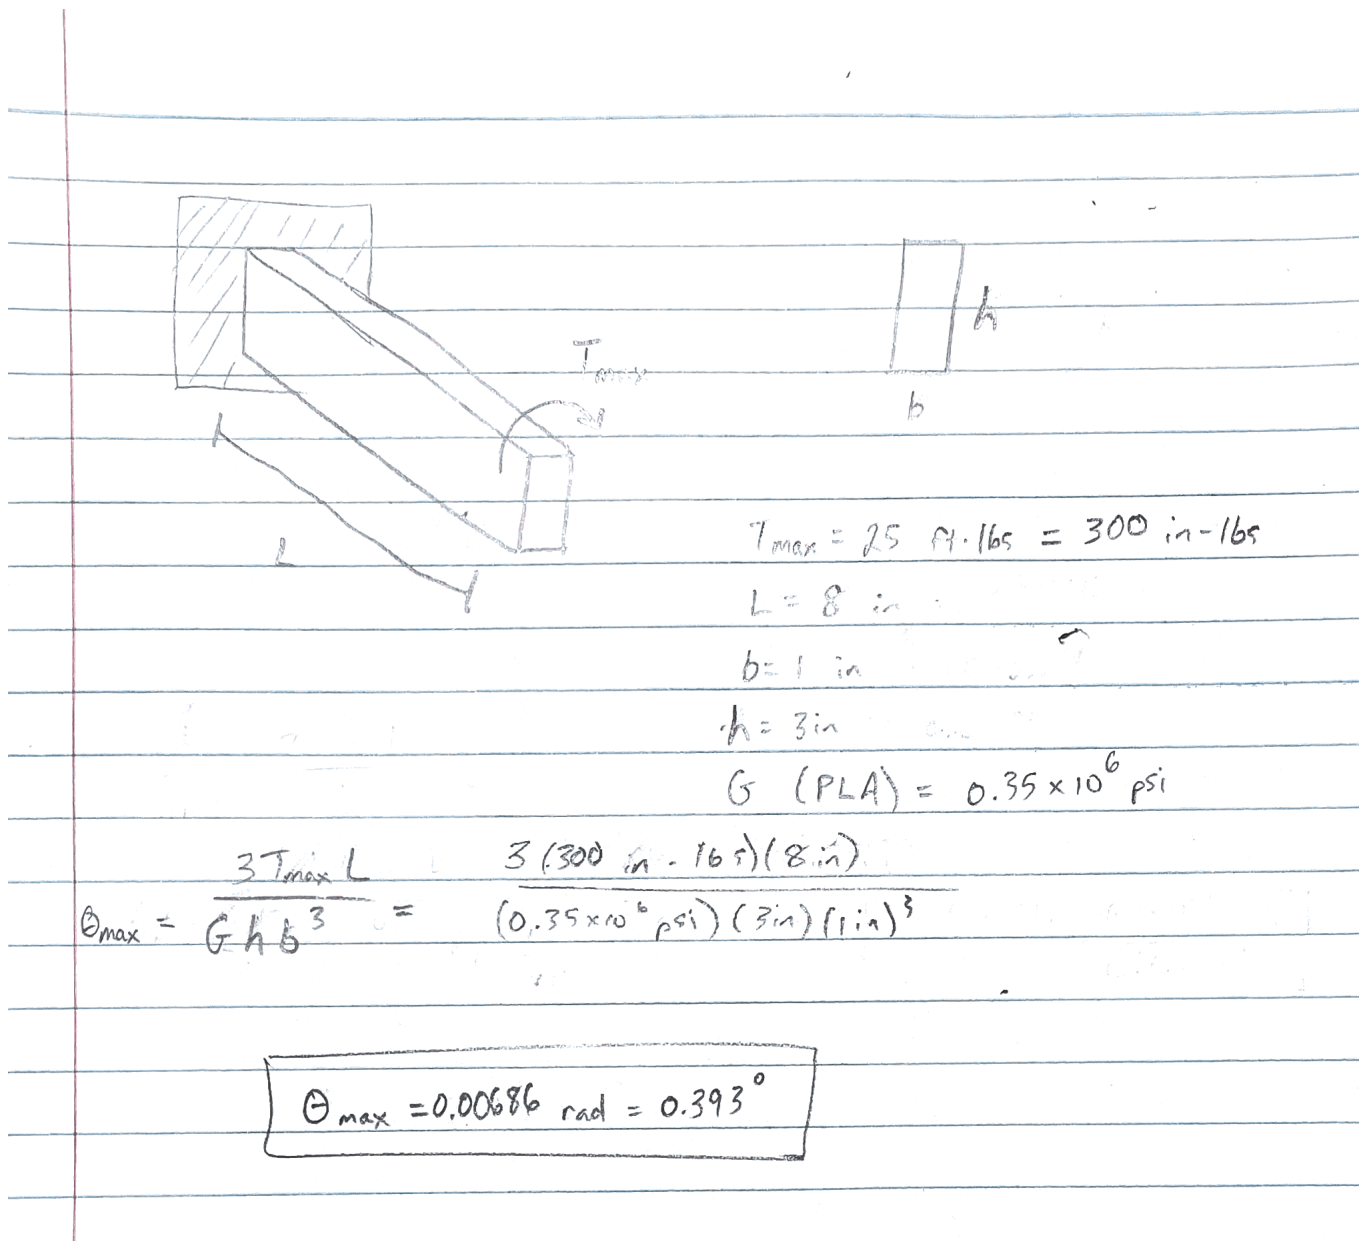 T max
h
b
L
T max = 25 ft·lbs = 300 in-lbs
L = 8 in
b = 1 in
h = 3 in
G (PLA) = 0.35 × 10⁶ psi
θ max = 3 T max L / G h b³ = 3 (300 in-lbs)(8 in) / (0.35 × 10⁶ psi)(3 in)(1 in)³
θ max = 0.00686 rad = 0.393°